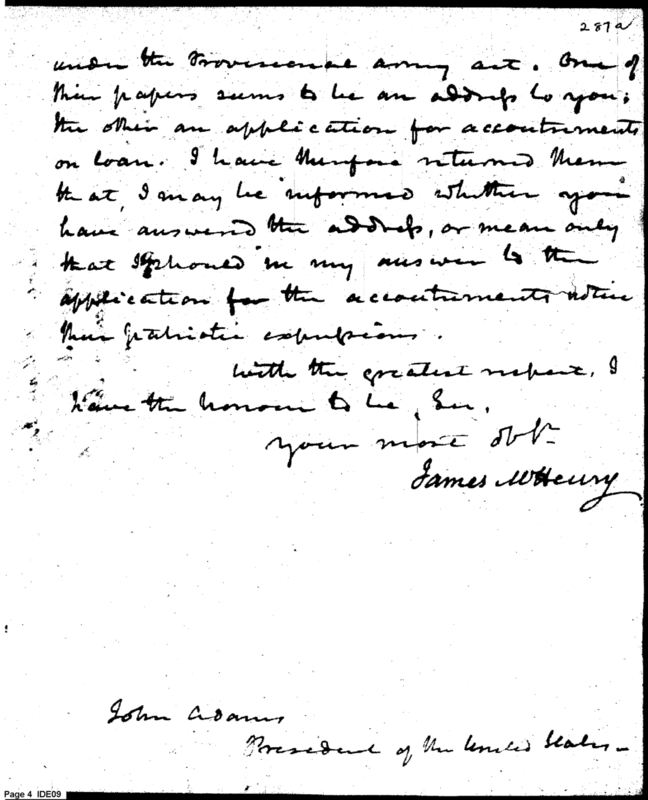 287a
under the Provisional army act. One of
their papers seems to be an address to you;
the other an application for accoutrements
on loan. I have therefore returned them
that, I may be informed whether you
have answered the address, or mean only
that I should in my answer to the
application for the accoutrements notice
their patriotic expressions.
With the greatest respect, I
have the honour to be, Sir,
your most obt
James McHenry
John Adams
President of the United States
Page 4 IDE09